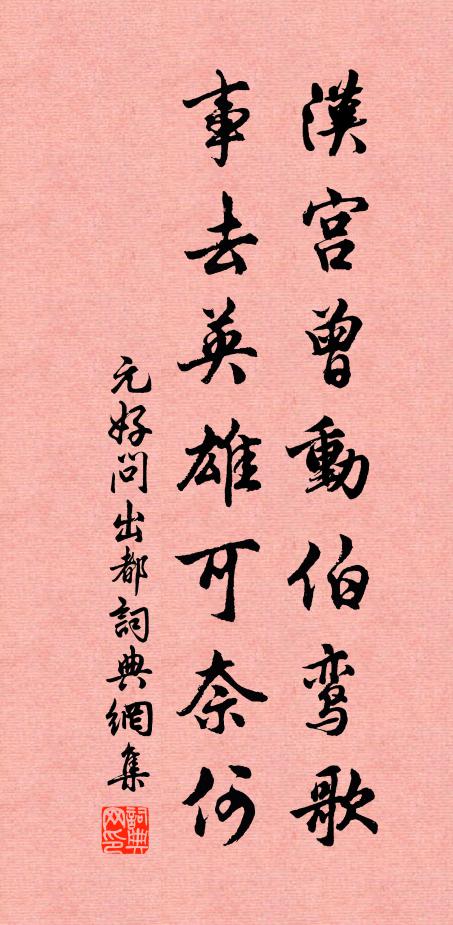 漢宫曾動伯鸾歌
事去英雄可奈何
元好问出都詞典網集
詞典网印